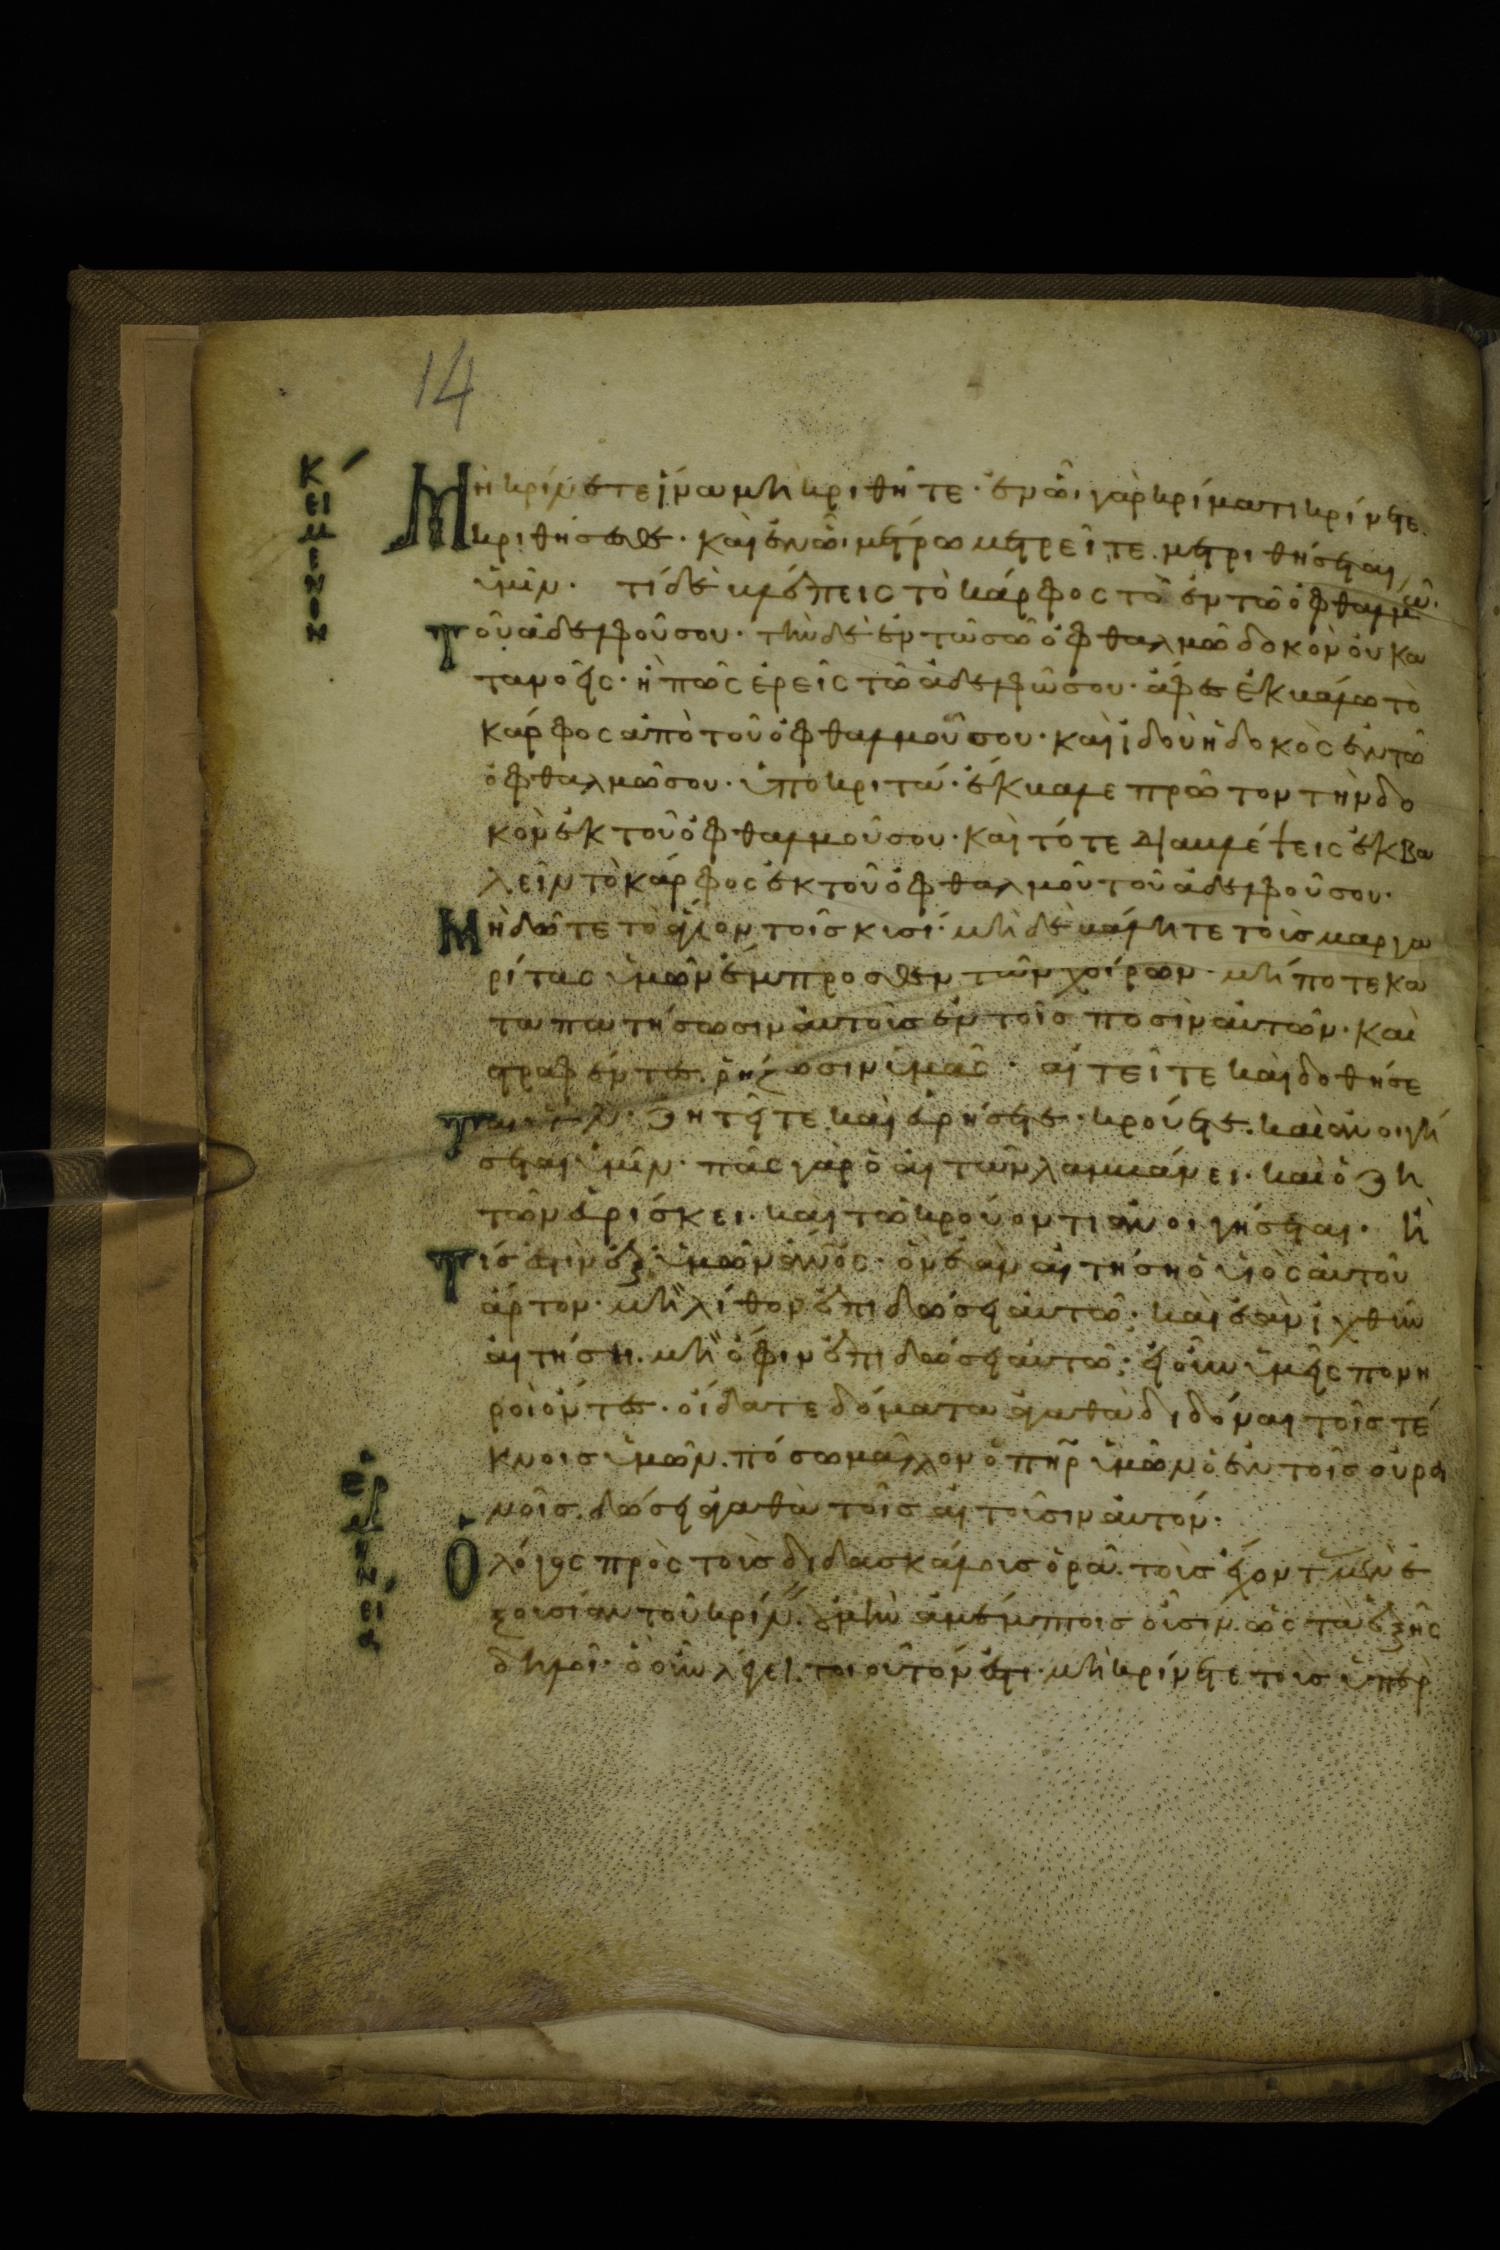 14
ΚΕΙΜΙΝΙΝ
Μὴ κρίνετε ἵνα μὴ κριθῆτε· ἐν ὧι γὰρ κρίματι κρίνετε
κριθήσεσθε· καὶ ἐν ὧι μέτρω μετρεῖτε. μετριθήσεται
ὑμῖν. τί δὲ βλέπεις τὸ κάρφος τὸ ἐν τῶ ὀφθαλμῶ
τοῦ ἀδελφοῦ σου· τὴν δὲ ἐν τῶ σῶ ὀφθαλμῶ δοκὸν οὐ κα
τανοεῖς· ἢ πῶς ἐρεῖς τῶ ἀδελφῶ σου· ἄφες ἐκβάλω τὸ
κάρφος ἀπὸ τοῦ ὀφθαλμοῦ σου· καὶ ἰδοὺ ἡ δοκὸς ἐν τῶ
ὀφθαλμῶ σου· ὑποκριτά· ἔκβαλε πρῶτον τὴν δο
κὸν ἐκ τοῦ ὀφθαλμοῦ σου· καὶ τότε διαβλέψεις ἐκβα
λεῖν τὸ κάρφος ἐκ τοῦ ὀφθαλμοῦ τοῦ ἀδελφοῦ σου·
Μὴ δῶτε τὸ ἅγιον τοῖς κισί· μὴ δὲ βάλητε τοὺς μαργα
ρίτας ὑμῶν ἔμπροσθεν τῶν χοίρων· μήποτε κα
ταπατήσωσιν αὐτοὺς ἐν τοῖς ποσὶν αὐτῶν· καὶ
στραφέντες ῥήξωσιν ὑμᾶς· αἰτεῖτε καὶ δοθήσε
ται ὑμῖν· ζητεῖτε καὶ εὑρήσετε· κρούετε. καὶ ἀνοιγή
σεται ὑμῖν· πᾶς γὰρ ὁ αἰτῶν λαμβάνει· καὶ ὁ ζη
τῶν εὑρίσκει· καὶ τῶ κρούοντι ἀνοιγήσεται· ἢ
τίς ἐστὶν ἐξ ὑμῶν ἄνος· ὃν ἐὰν αἰτήση ὁ υἱὸς αὐτοῦ
ἄρτον· μὴ λίθον ἐπιδώσει αὐτῶ; καὶ ἐὰν ἰχθὺν
αἰτήση. μὴ ὄφιν ἐπιδώσει αὐτῶ; εἰ οὖν ὑμεῖς πονη
ροὶ ὄντες· οἴδατε δόματα ἀγαθὰ διδόναι τοῖς τέ
κνοις ὑμῶν. πόσω μᾶλλον ὁ πηρ ὑμῶν ὁ ἐν τοῖς οὐρα
νοῖς. δώσει ἀγαθὰ τοῖς αἰτοῦσιν αὐτόν·
ΕΡΜΗΝΕΙΑ
Ὁ λόγος πρὸς τοὺς διδασκάλους ὁρᾶ. τοὺς ἔχοντ μὲν ἐ
ξουσίαν τοῦ κρίν. μὴν ἀμέμπτοις οὖσιν. ὡς τὰ ἑξῆς
δηλοῖ· ὃ οὖν λέγει. τοιοῦτόν ἐστι· μὴ κρίνετε τοὺς ὑπὲρ